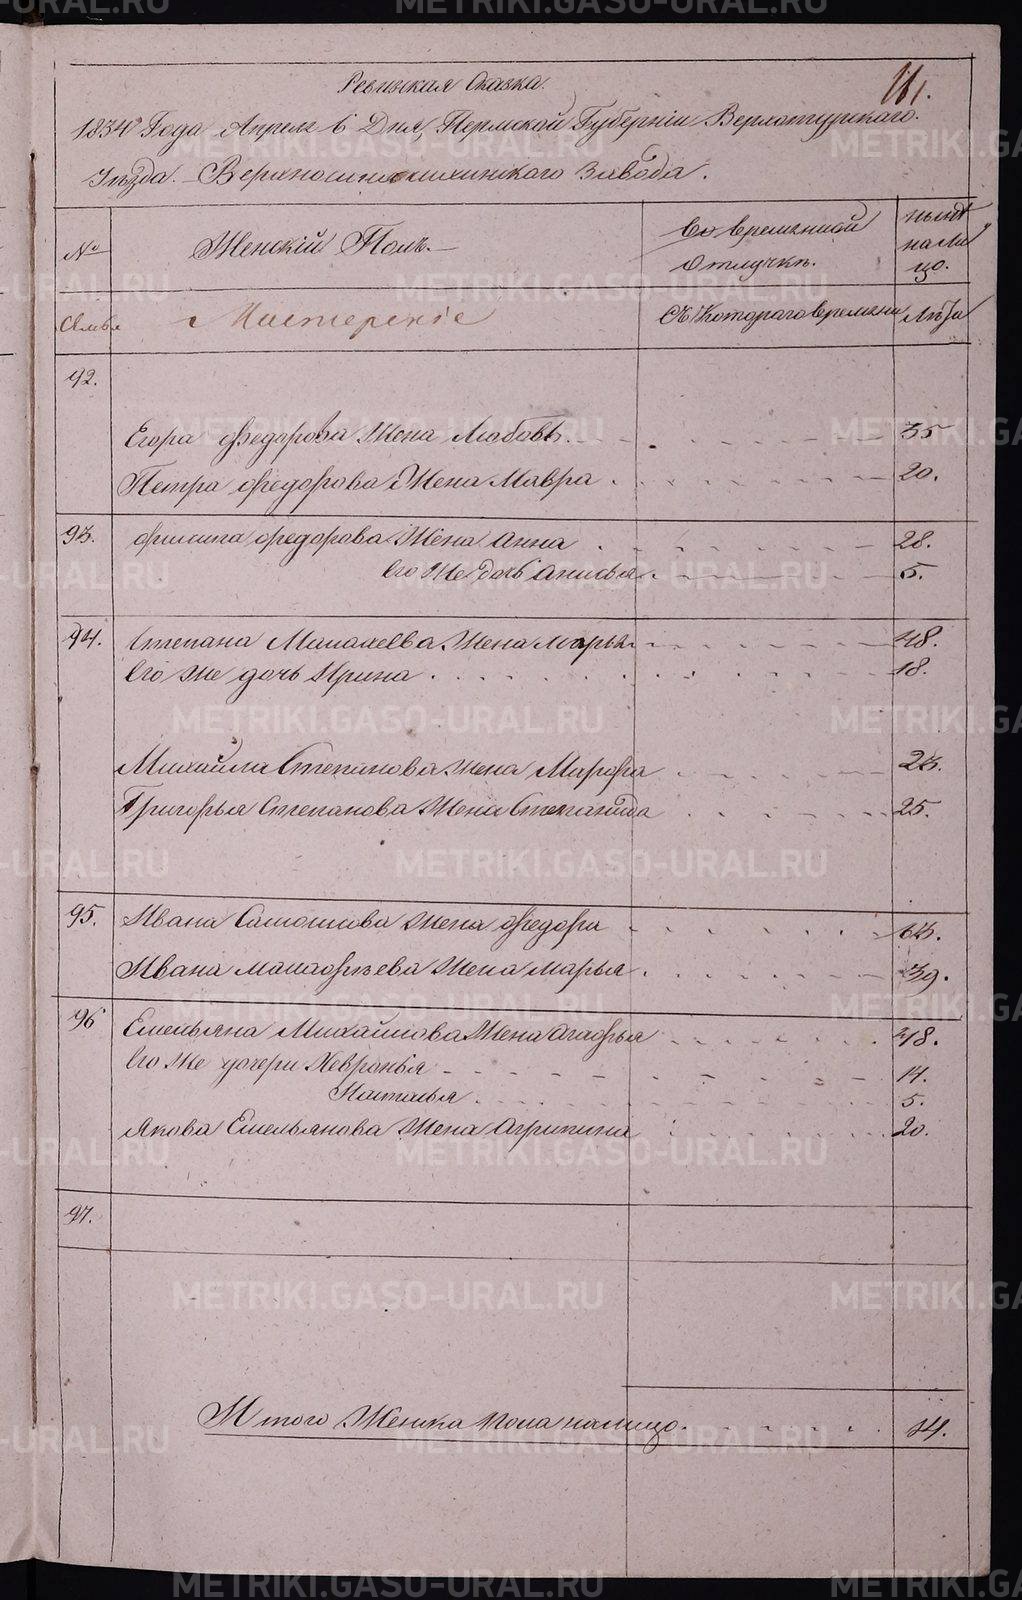 Ревизская Сказка.
1834го Года Апреля 6 Дня, Пермской Губерніи Верхотурскаго.
Уѣзда. Верхносинячихинскаго Завода.
№
Женскій Полъ.
во временной
Отлучкѣ.
нынѣ
на ли
цо.
Семьи
Мастерскіе
Съ Котораго времени
Лѣта
92.
Егора Федорова Жена Любовь. 35
Петра Федорова Жена Мавра. 20.
93. Филипа Федорова Жена Анна. 28.
Его Же дочь Анисья. 5.
94. Степана Макалеева Жена Марья 48.
Его же дочь Ирина. 18.
Михайла Степанова жена Марфа 23.
Григорья Степанова Жена Степанида 25.
95. Ивана Самойлова Жена Федора 63.
Ивана Жена Марья. 39.
96 Емельяна Михайлова Жена Агафья 48.
Его Же дочери Хевронья 14.
Наталья. 5.
Якова Емельянова Жена Агрипина 20.
97.
Итого Женска пола налицо. 14.
METRIKI.GASO-URAL.RU